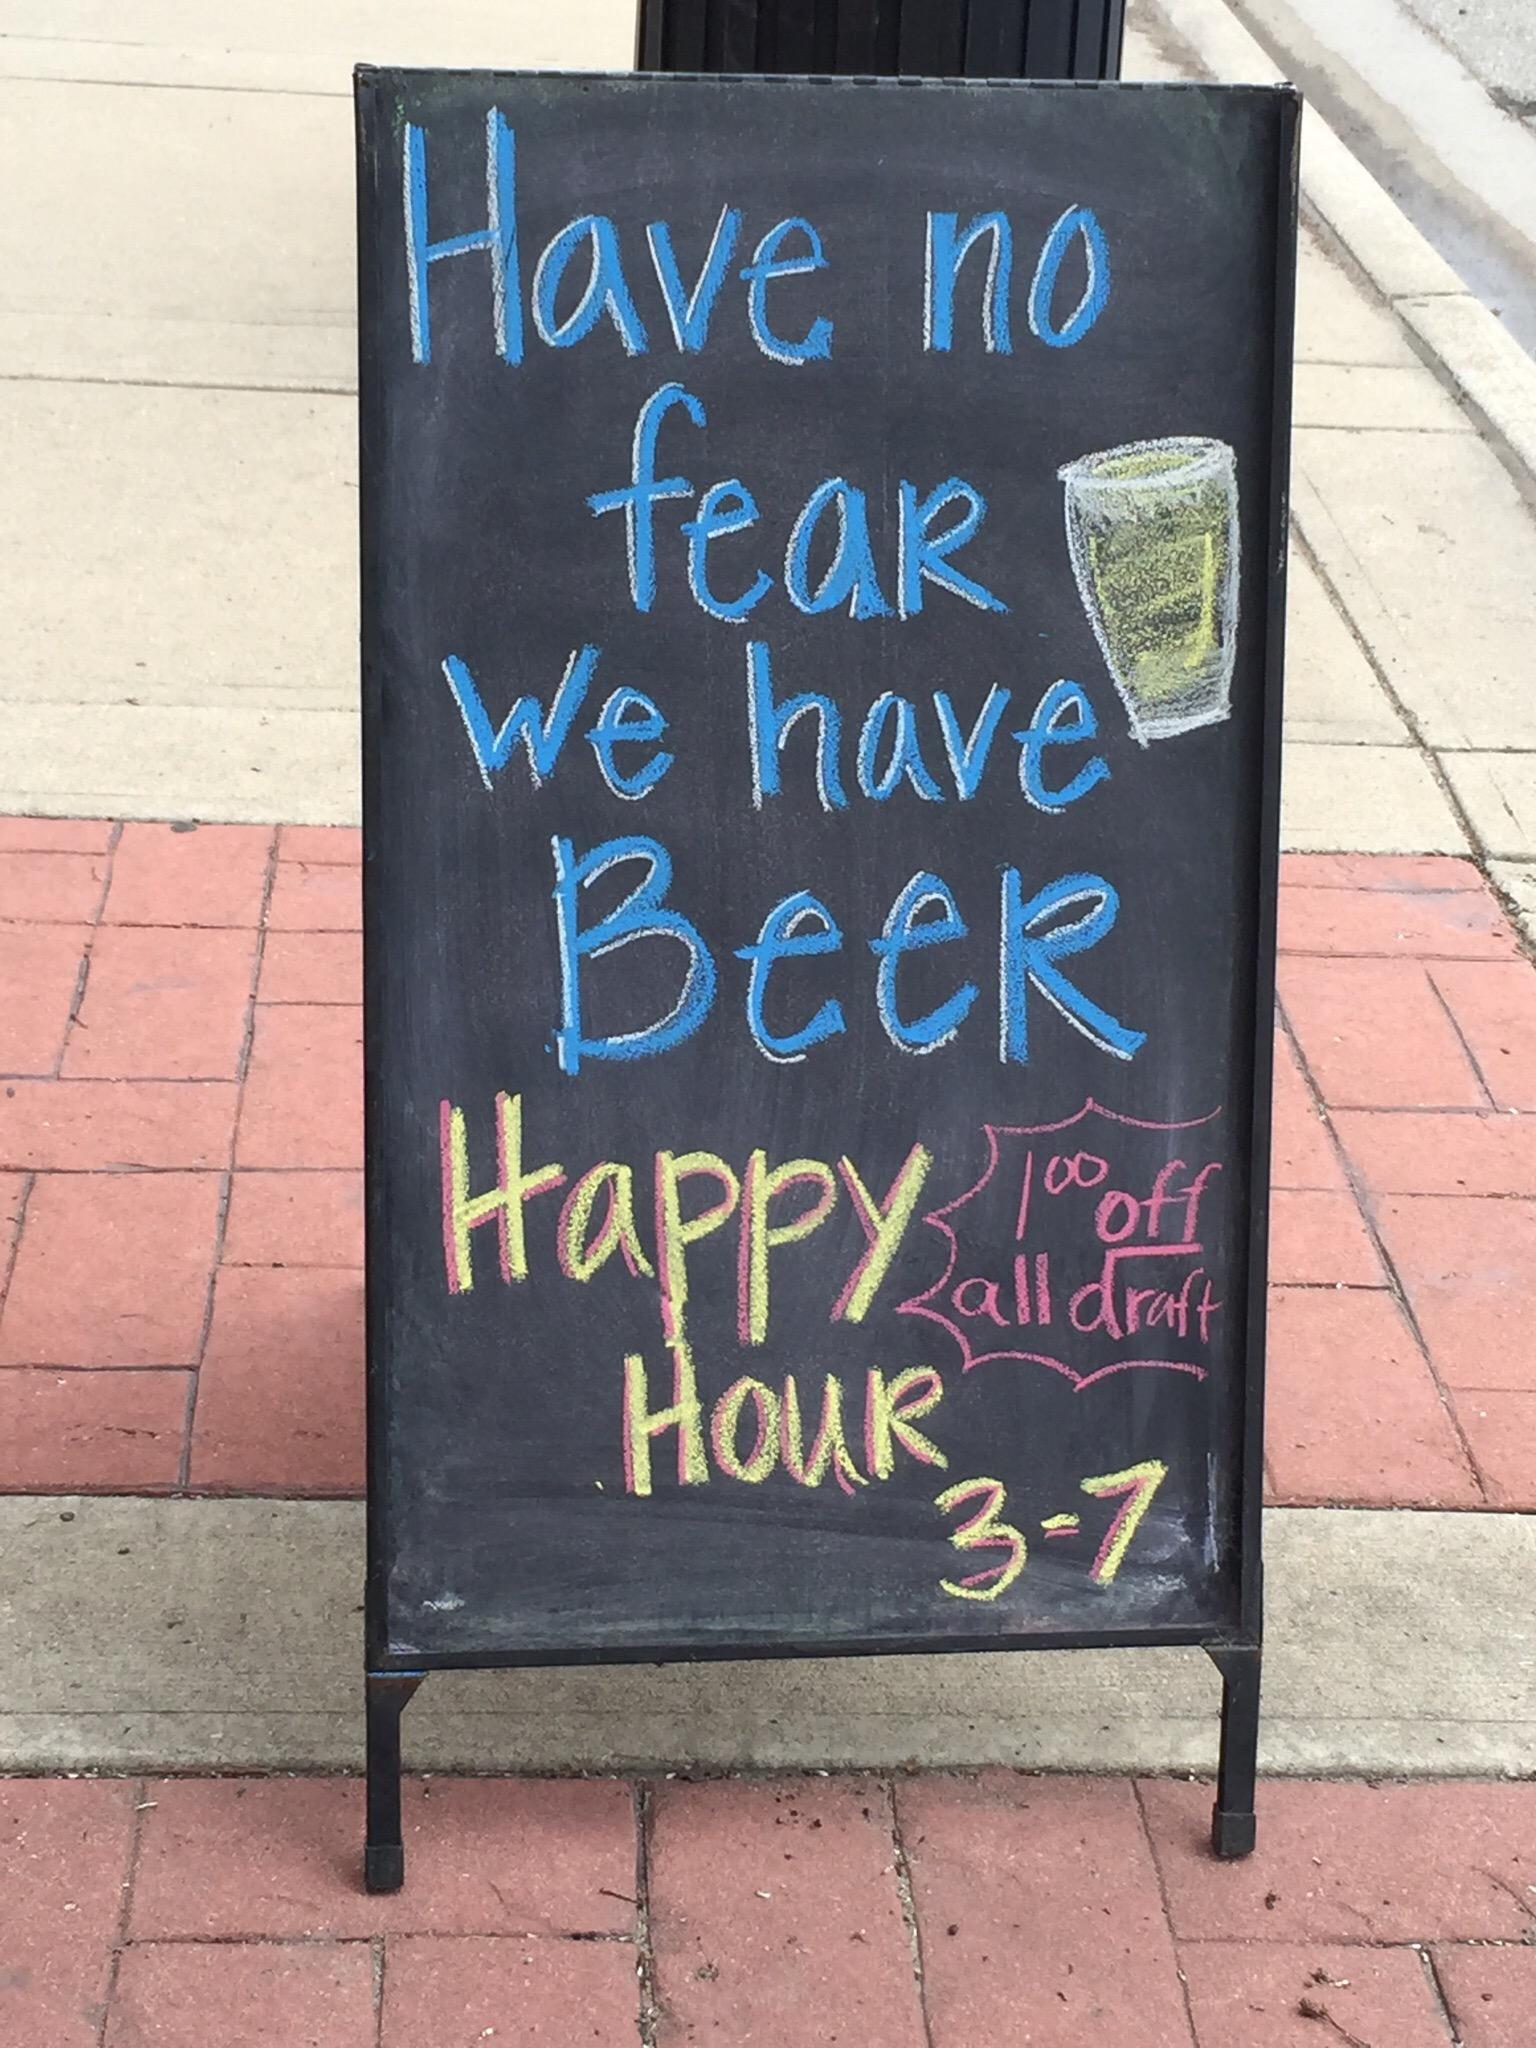 Have no
fear
we have
Beer
Happy
Hour
3-7
1⁰⁰ off
all draft